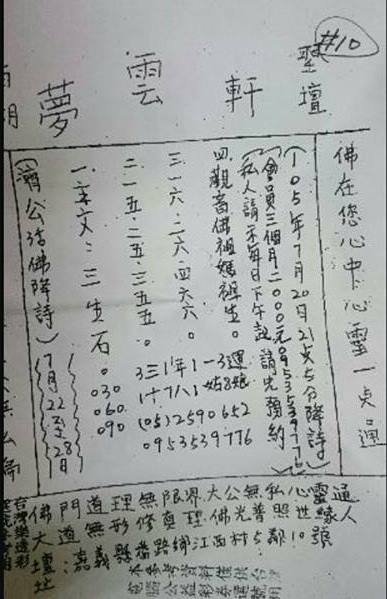 #10
聖壇
夢雲軒
佛在您心中心靈一点通
(105年7月20日21点5分降詩)
會員三個月2000元0953539776
私人請示每日下午說請先預約
四.觀音佛祖媽祖生。
三.一六.二六.四六六。
二.一五.二五.三五五。
一.本文:三生石。
030
060
090
(05)2590652
0953539776
(濟公活佛降詩)
7月22至28日
佛門道理無限界大公無私心靈通
大道無形修真理佛光普照世緣人
壇址:嘉義縣番路鄉江西村5鄰10號
本參考資料僅供台灣